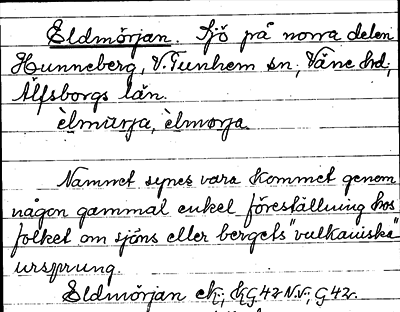 Eldmörjan. Sjö på norra delen
Hunneberg, V. Tunhem sn; Väne hd;
Älfsborgs län.
èlmurja, èlmorja.
Namnet synes vara kommet genom
någon gammal enkel föreställning hos
folket om sjöns eller bergets "vulkaniska"
ursprung.
Eldmörjan ek; G42.